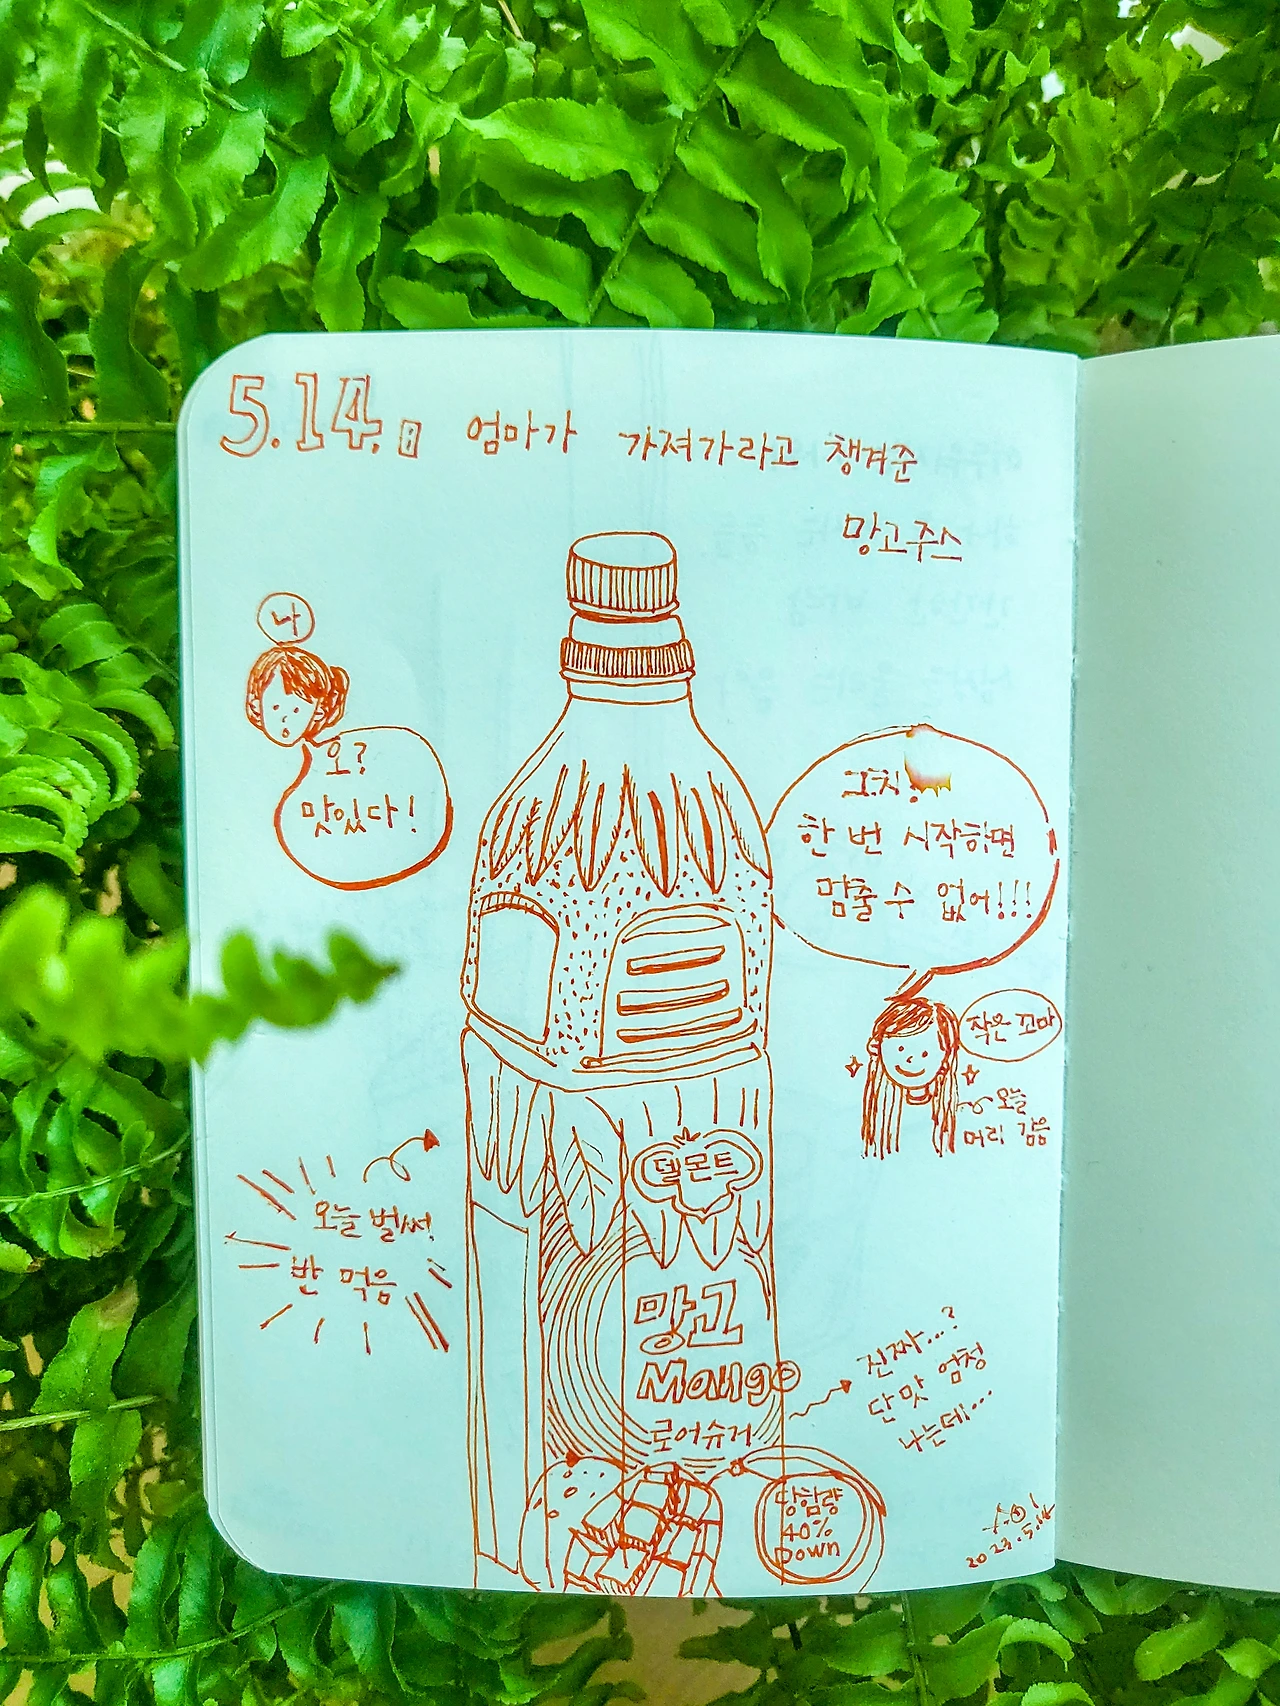 5.14.일 엄마가 가져가라고 챙겨준
망고주스
나
오?
맛있다!
그치!
한 번 시작하면
멈출 수 없어!!!
작은 꼬마
오늘
머리 감음
오늘 벌써!
반 먹음
델몬트
망고
Mango
로어슈거
진짜...?
단맛 엄청
나는데...
당함량
40%
Down
2023.5.14